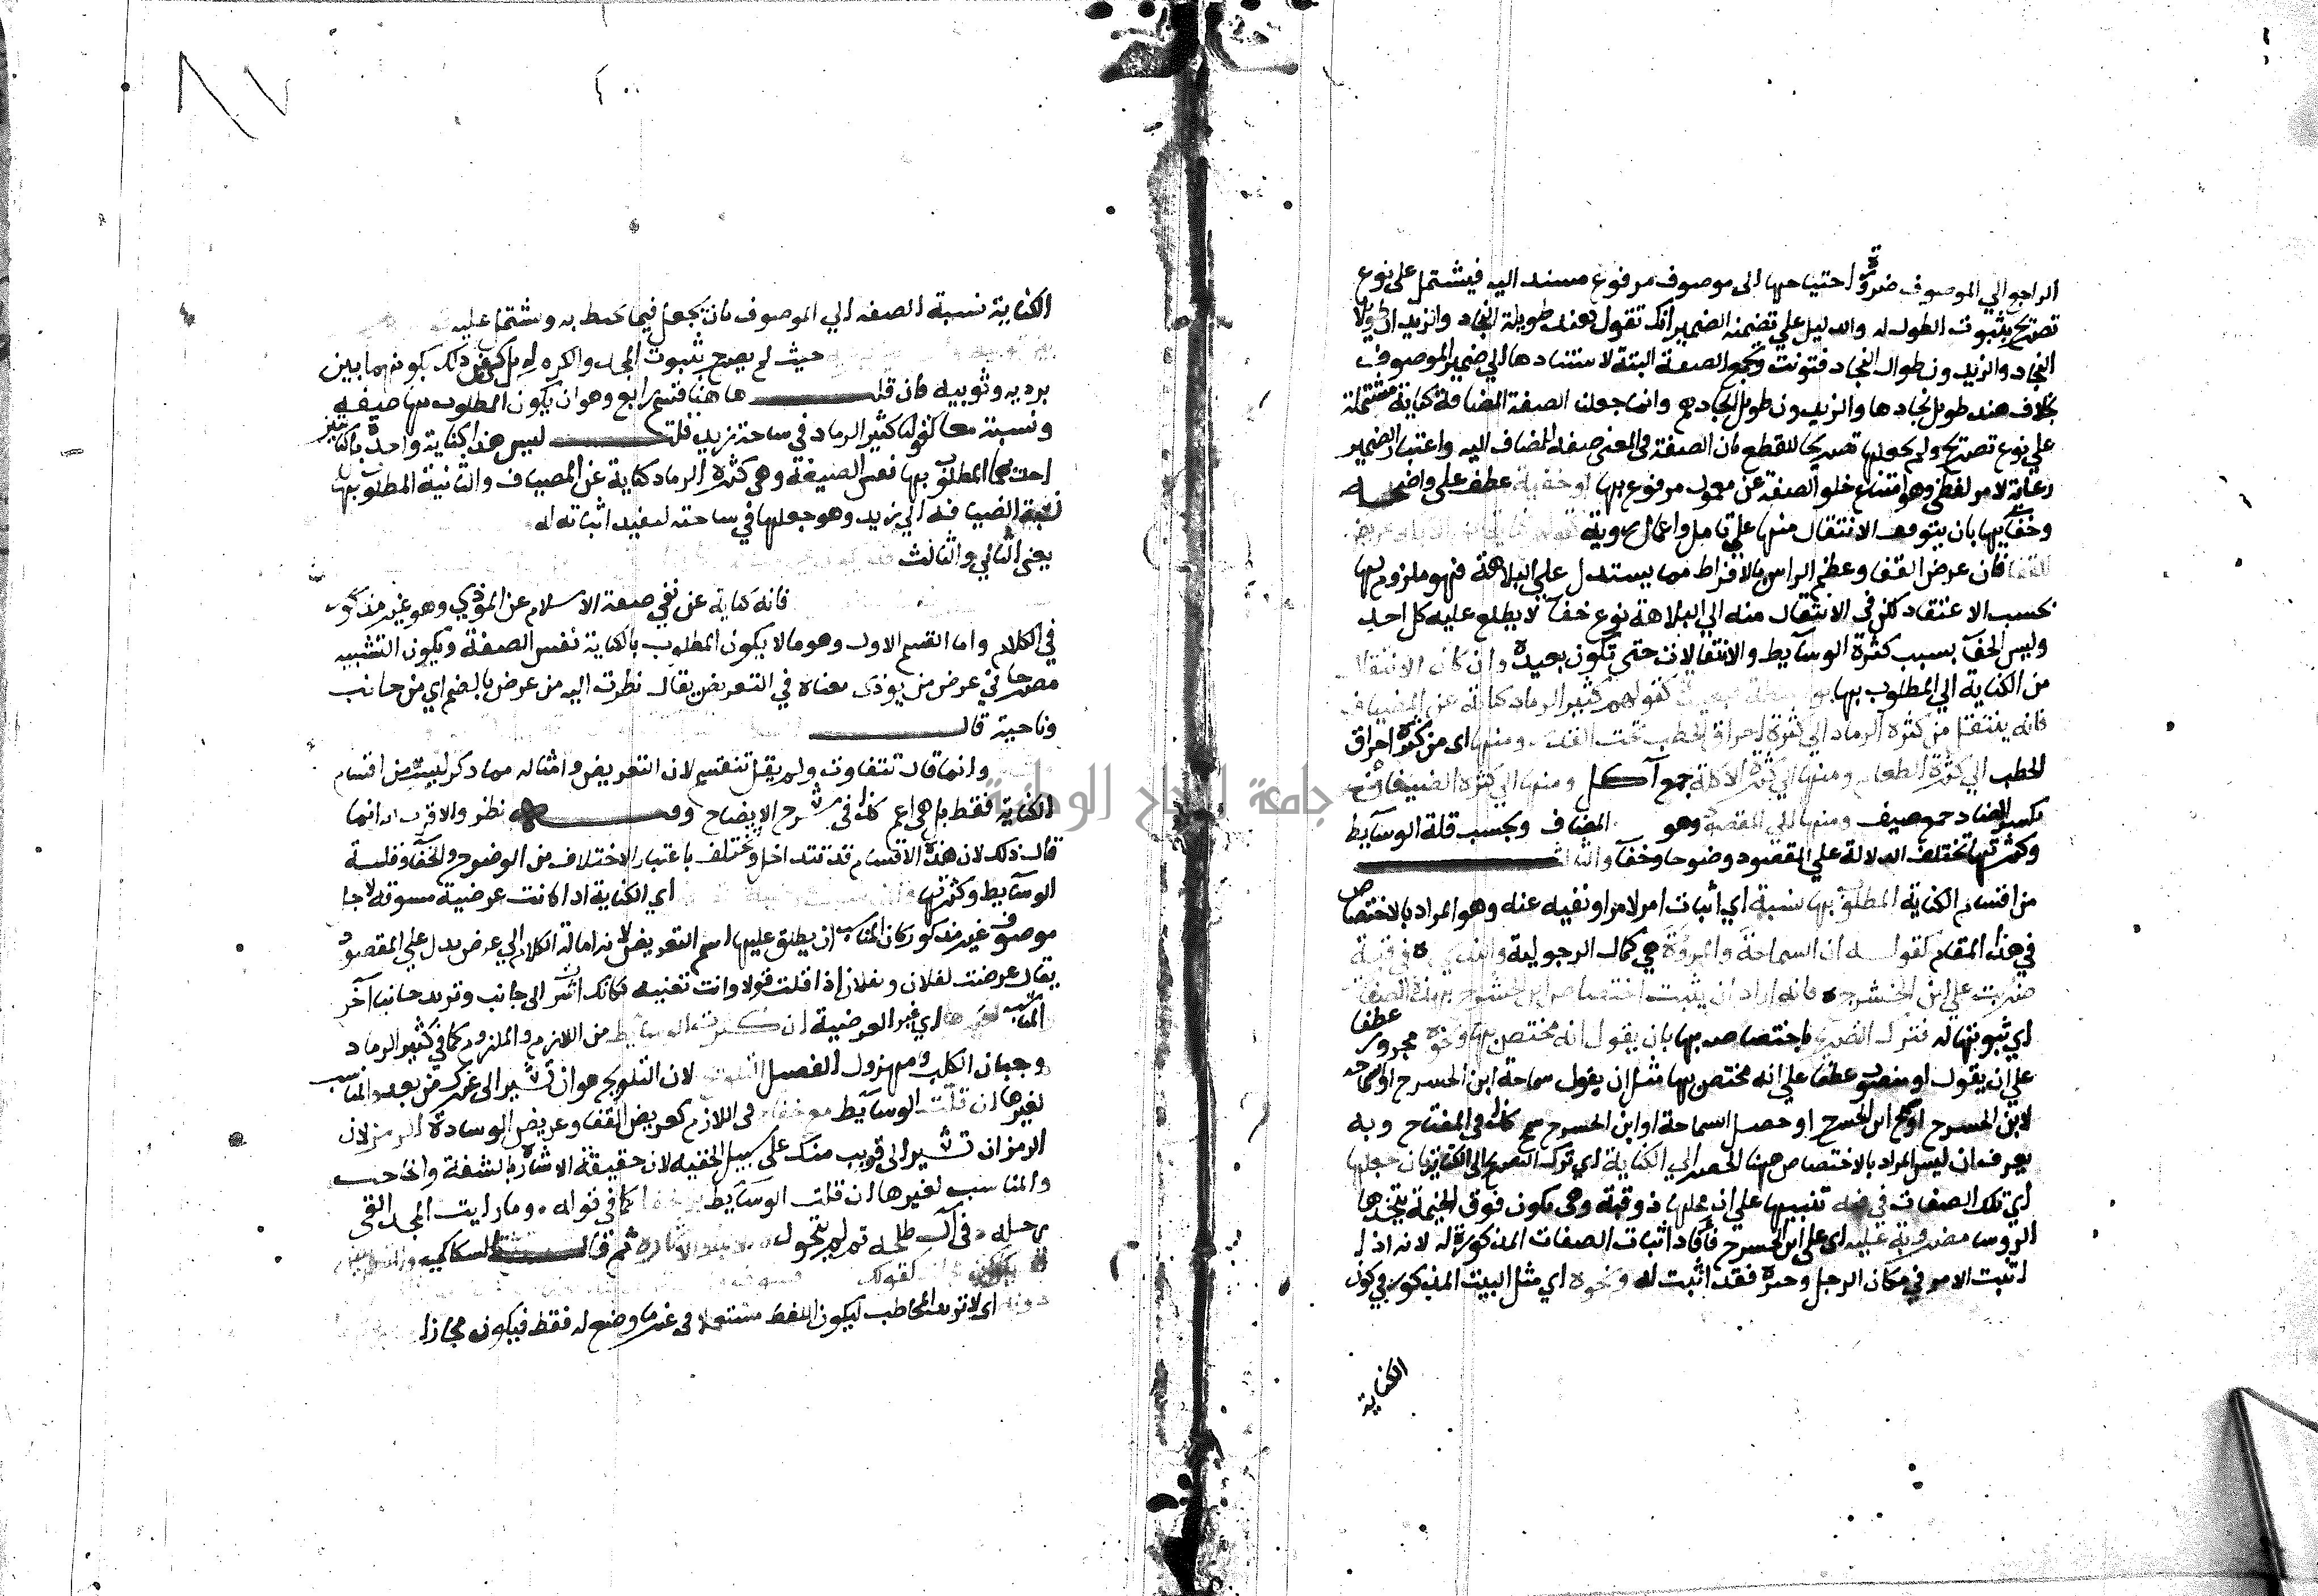 الراجع الي الموصوف ضرورة احتياجها الى موصوف مرفوع مسند اليه فيشتمل على نوع
تصريح بثبوت الطول له والدليل علي تضمنه الضمير انك تقول هند طويلة النجاد والزيدان طويلا
النجاد والزيدون طوال النجاد فتونث وتجمع الصفة البتة لاسنادها الي ضمير الموصوف
بخلاف هند طويل نجادها والزيدون طويل نجادهم وانما جعلنا الصفة المضافة كناية مشتملة
علي نوع تصريح ولم نجعلها تصريحا للقطع بان الصفة في المعنى صفة للمضاف اليه واعتبار الضمير
رعاية لامر لفظي وهو امتناع خلو الصفة عن معمول مرفوع بها او خفية عطف على واضحة
وخفاؤها بان يتوقف الانتقال منها علي تامل واعمال روية
للقفا فان عرض القفا وعظم الراس بالافراط مما يستدل علي البلاهة فهو ملزوم لها
بحسب الاعتقاد لكن في الانتقال منه الي البلاهة نوع خفا لا يطلع عليه كل احد
وليس الخفآ بسبب كثرة الوسآيط والانتقالات حتي تكون بعيدة وان كان الانتقال
من الكناية الي المطلوب بها بواسطة فبعيدة كقولهم كثير الرماد كناية عن المضياف
فانه ينتقل من كثرة الرماد الي كثرة احراق الحطب تحت القدر ومنها اى من كثرة احراق
الحطب الي كثرة الطعام ومنها الي كثرة الاكلة جمع آكل ومنها الي كثرة الضيفان
بكسر الضاد جمع ضيف ومنها الي المقصود وهو المضاف وبحسب قلة الوسآيط
وكثرتها تختلف الدلالة علي المقصود وضوحا وخفآ والثالثة
من اقسام الكناية المطلوب بها نسبة اي اثبات امر لامر او نفيه عنه وهو المراد بالاختصاص
في هذا المقام كقوله ان السماحة والمروة هي كمال الرجولية والندى في قبة
ضربت علي ابن الحشرج فانه اراد ان يثبت اختصاص ابن الحشرج بهذه الصفات
اي ثبوتها له فترك التصريح باختصاصه بها بان يقول انه مختص بها ونحوه مجرور عطفا
علي ان يقول او منصوب عطفا علي انه مختص بها مثل ان يقول سماحة ابن الحسرج او السماحة
لابن الحسرج او سمح ابن الحسرح او حصل السماحة او ابن الحسرح سمح كذا في المفتاح وبه
يعرف ان ليس المراد بالاختصاص ههنا الحصر الي الكناية اي ترك التصريح الى الكناية بان جعلها
اي تلك الصفات في قبة تنبيها علي ان محلها ذو قبة وهي تكون فوق الخيمة يتخذها
الروسا مضروبة عليه اى على ابن الحسرح فأفاد اثبات الصفات المذكورة له لانه اذا
اثبت الامر في مكان الرجل وحده فقد اثبت له ونحوه اي مثل البيت المذكور في كون
الكناية
الكناية نسبة الصفة الي الموصوف بان تجعل فيما يحيط به ويشتمل عليه
حيث لم يصرح بثبوت المجد والكرم له بل كنى عن ذلك بكونهما بين
برديه وثوبيه فان قلت ها هنا قسم رابع وهو ان يكون المطلوب بها صفة
ونسبة معا كقولنا كثير الرماد في ساحة زيد قلت ليس هذا كناية واحدة بل كنايتين
احداهما المطلوب بها نفس الصفة وهي كثرة الرماد كناية عن المضياف والثانية المطلوب بها
نسبة الضيافة الي زيد وهو جعلها في ساحته ليفيد اثباته له
يعنى الثاني والثالث
فانه كناية عن نفي صفة الاسلام عن الموذي وهو غير مذكور
في الكلام واما القسم الاول وهو ما لا يكون المطلوب بالكناية نفس الصفة وتكون النسبة
مصرحا في عرض من يوذى معناه في التعريض يقال نظرت اليه من عرض بالضم اي من جانب
وناحية قال
وانما قال تتفاوت ولم يقل تنقسم لان التعريض وامثاله مما ذكر ليس من اقسام
الكناية فقط بل هي اعم كذا في شرح الايضاح وفيه نظر والاقرب انه انما
قال ذلك لان هذه الاقسام قد تتداخل وتختلف باعتبار الاختلاف من الوضوح والخفآ وقلة
الوسآيط وكثرتها اي الكناية اذا كانت عرضية مسوقة لاجل
موصوف غير مذكور كان المناسب ان يطلق عليها اسم التعريض لانه امالة الكلام الي عرض يدل علي المقصود
يقال عرضت لفلان وبفلان اذا قلت قولا وانت تعنيه فكانك اشرت الى جانب وتريد جانبا آخر
المناسب لغيرها اي غير العرضية ان كثرت الوسائط من اللازم والملزوم كما في كثير الرماد
وجبان الكلب ومهزول الفصيل التلويح لان التلويح هو ان تشير الى غيرك من بعد والمناسب
لغيرها ان قلت الوسآيط مع خفاء في اللازم كعريض القفا وعريض الوسادة الرمز لان
الرمز ان تشير الى قريب منك على سبيل الخفيه لان حقيقته الاشارة بالشفة والحاجب
والمناسب لغيرها ان قلت الوسآيط بلا خفاء كما في قوله وما رايت المجد القى
رحله في آل طلحة ثم لم يتحول الاشارة ثم قال السكاكي
كقولك
اي لا تريد المخاطب ليكون اللفظ مستعملا في غير ما وضع له فقط فيكون مجازا
جامعة النجاح الوطنية